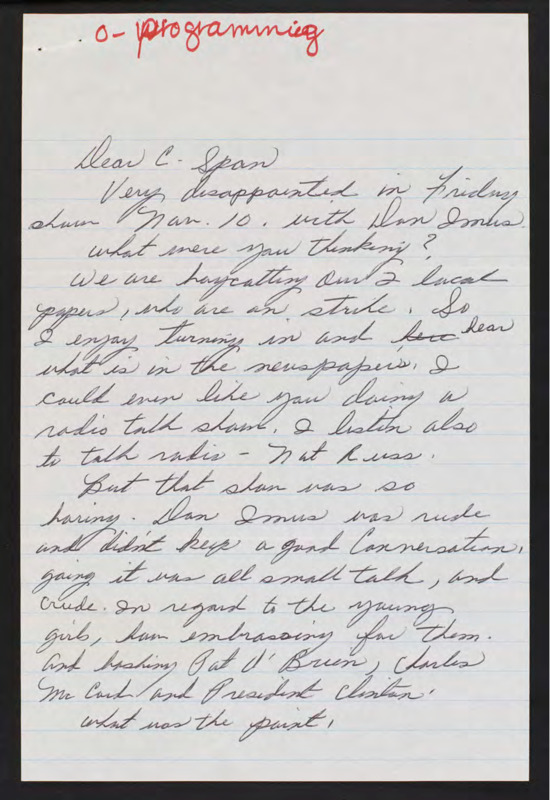 o- programming
Dear C- Span
Very disappointed in Friday
show Nov. 10. with Don Imus.
what were you thinking?
We are boycatting our 2 local
papers, who are on strike. So
I enjoy turning in and hear
what is in the newspapers. I
could even like you doing a
radio talk show. I listen also
to talk radio - Not Russ.
But that show was so
boring. Don Imus was rude
and didn't keep a good Conversation,
going it was all small talk, and
crude. In regard to the young
girls, how embrassing for them.
and bashing Pat O' Brien, Charles
Mc Cord and President Clinton.
what was the point.